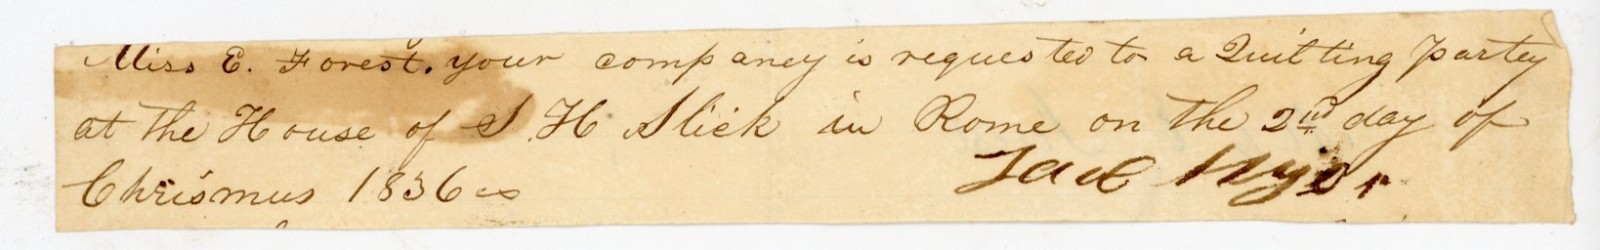 Miss E. Forest. your company is requested to a Quilting party
at the House of S. H Slick in Rome on the 2nd day of
Chrismus 1836